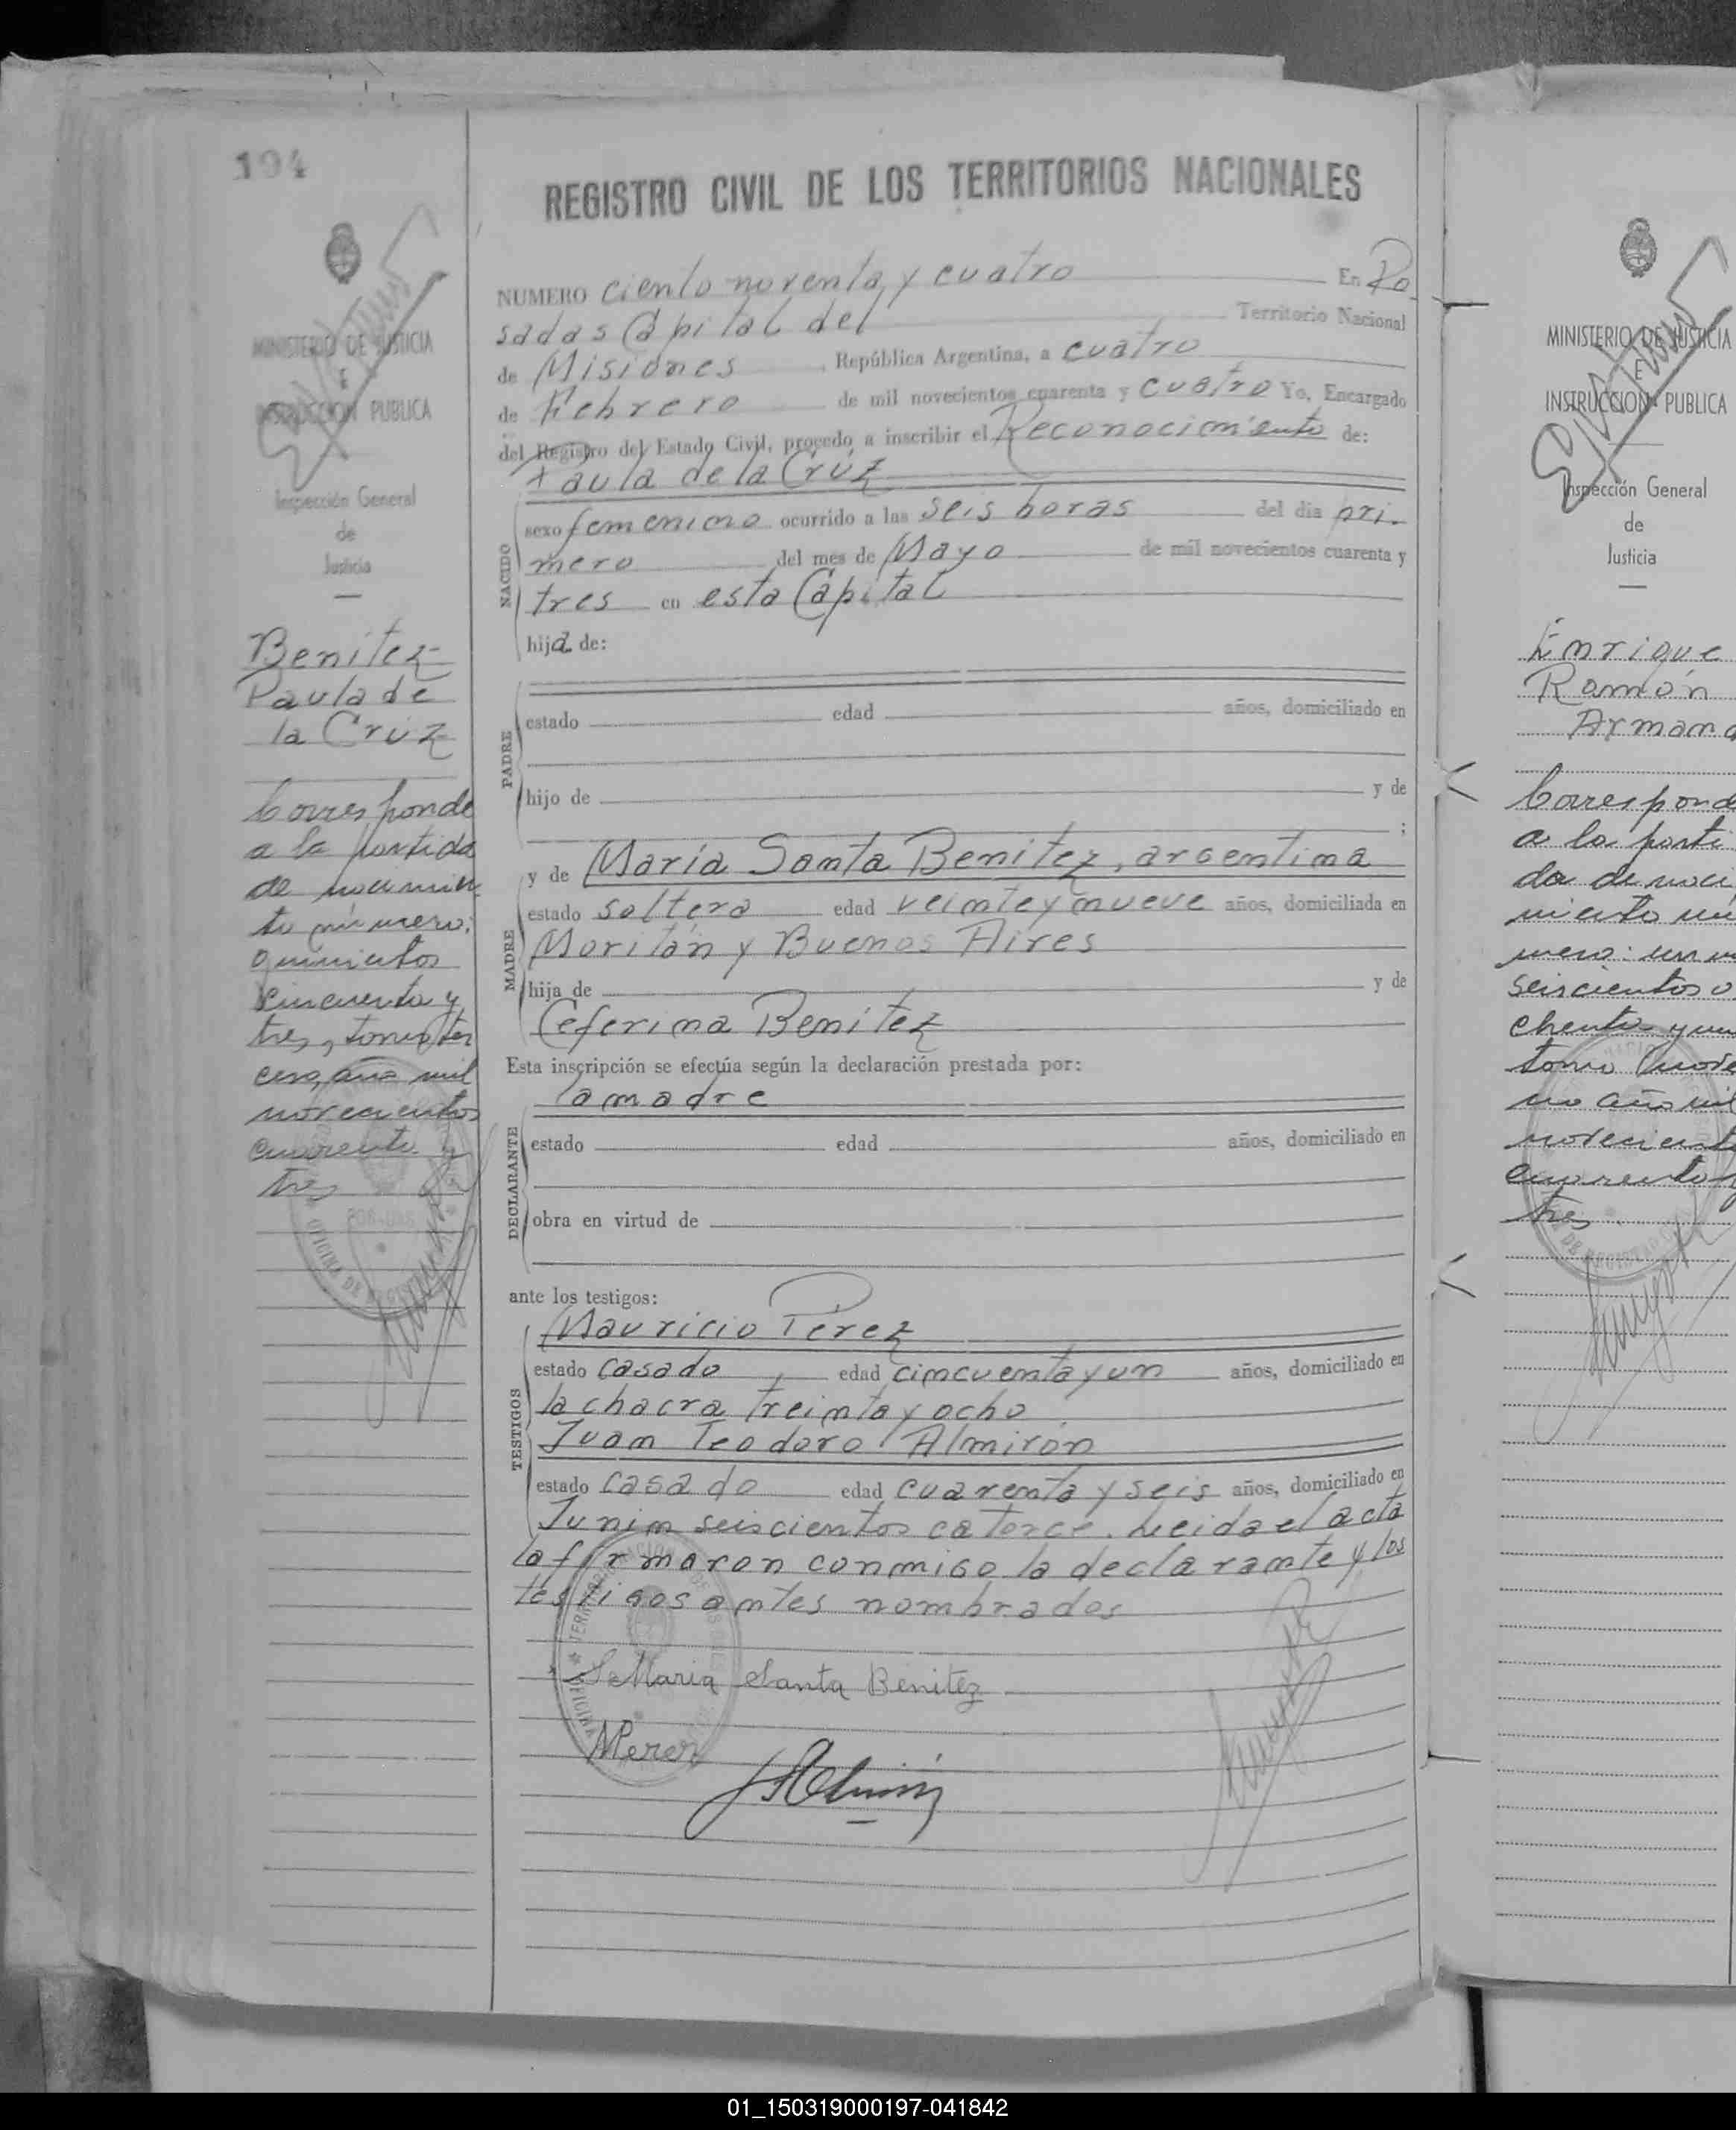 194
REGISTRO CIVIL DE LOS TERRITORIOS NACIONALES
NUMERO ciento noventa y cuatro En Po
sadas Capital del Territorio Nacional
de Misiones, República Argentina, a cuatro
de Febrero de mil novecientos cuarenta y cuatro Yo, Encargado
del Registro del Estado Civil, procedo a inscribir el Reconocimiento de:
Paula de la Cruz
NACIDO
sexo femenino ocurrido a las seis horas del dia pri-
mero del mes de Mayo de mil novecientos cuarenta y
tres en esta Capital
hija de:
PADRE
estado edad años, domiciliado en
hijo de y de
;
y de María Santa Benitez, argentina
MADRE
estado soltera edad veinte y nueve años, domiciliada en
Moritán y Buenos Aires
hija de y de
Ceferina Benítez
Esta inscripción se efectúa según la declaración prestada por:
la madre
DECLARANTE
estado edad años, domiciliado en
obra en virtud de
ante los testigos:
TESTIGOS
Mauricio Pérez
estado casado edad cincuenta y un años, domiciliado en
la chacra treinta y ocho
Juan Teodoro Almirón
estado casado edad cuarenta y seis años, domiciliado en
Junin seiscientos catorce. Leida el acta
la firmaron conmigo la declarante y los
testigos antes nombrados
Maria Santa Benitez
MPerez
MINISTERIO DE JUSTICIA
E
INSTRUCCION PUBLICA
Inspección General
de
Justicia
Benítez
Paula de
la Cruz
Corresponde
a la partida
de nacimien
to número:
quinientos
cincuenta y
tres, tomo ter
cero, año mil
novecientos
cuarenta y
tres
POSADAS
OFICINA DE
MINISTERIO DE JUSTICIA
E
INSTRUCCION PUBLICA
Inspección General
de
Justicia
Enrique
Ramón
Arman
Correspond
a la parti
da de naci
miento nú
mero: un m
seiscientos o
chenta y un
tomo
no año mil
noveciento
cuarenta y
tres
01_150319000197-041842